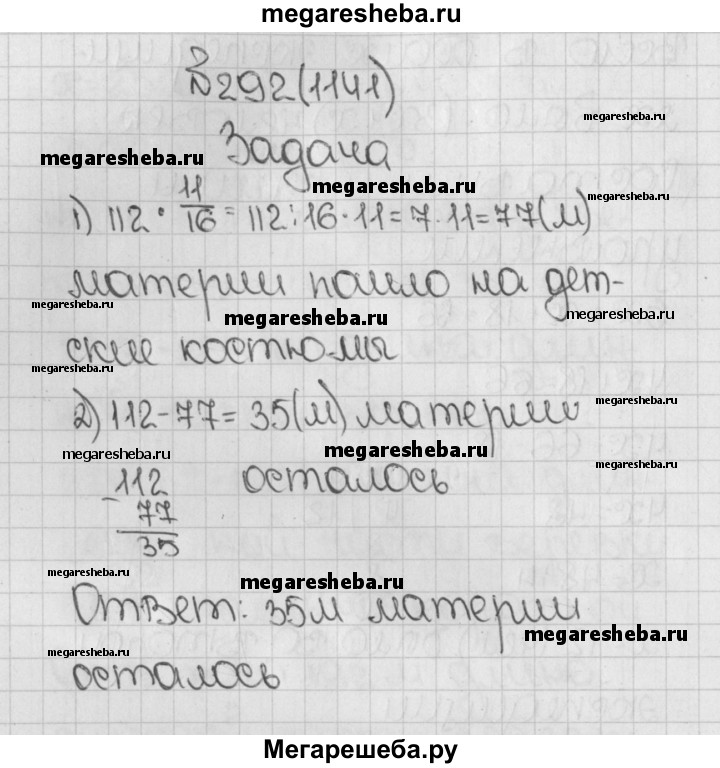 megaresheba.ru
№292(1141)
megaresheba.ru
Задача
megaresheba.ru
megaresheba.ru
megaresheba.ru
1) 112 · 11/16 = 112:16·11=7·11=77(м)
материи пошло на дет-
megaresheba.ru
megaresheba.ru
megaresheba.ru
ские костюмы
megaresheba.ru
2) 112-77=35(м) материи
megaresheba.ru
megaresheba.ru
megaresheba.ru
megaresheba.ru
осталось
-112
77
35
megaresheba.ru
megaresheba.ru
Ответ: 35м материи
megaresheba.ru
megaresheba.ru
осталось
Мегарешеба.ру